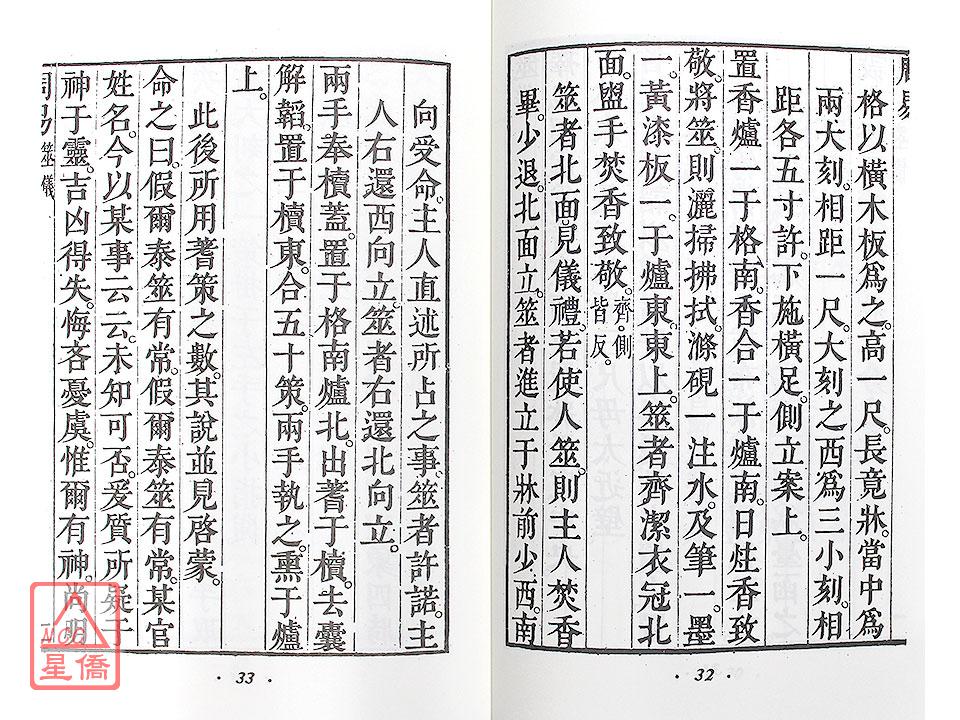 周易
格以橫木板爲之。高一尺。長竟牀。當中爲
兩大刻。相距一尺。大刻之西爲三小刻。相
距各五寸許。下施橫足。側立案上。
置香爐一于格南。香合一于爐南。日炷香致
敬。將筮。則灑掃拂拭。滌硯一注水。及筆一。墨
一。黃漆板一。于爐東。東上。筮者齊潔衣冠北
面。盥手焚香致敬。齊。側皆反。
筮者北面。見儀禮。若使人筮。則主人焚香
畢。少退。北面立。筮者進立于牀前少西。南
· 32 ·
向受命。主人直述所占之事。筮者許諾。主
人右還西向立。筮者右還北向立。
兩手奉櫝蓋。置于格南爐北。出蓍于櫝。去囊
解韜。置于櫝東。合五十策。兩手執之。熏于爐
上。
此後所用蓍策之數。其說並見啓蒙。
命之曰。假爾泰筮有常。假爾泰筮有常。某官
姓名。今以某事云云。未知可否。爰質所疑于
神于靈。吉凶得失。悔吝憂虞。惟爾有神。尚明
周易 筮儀
· 33 ·
星僑